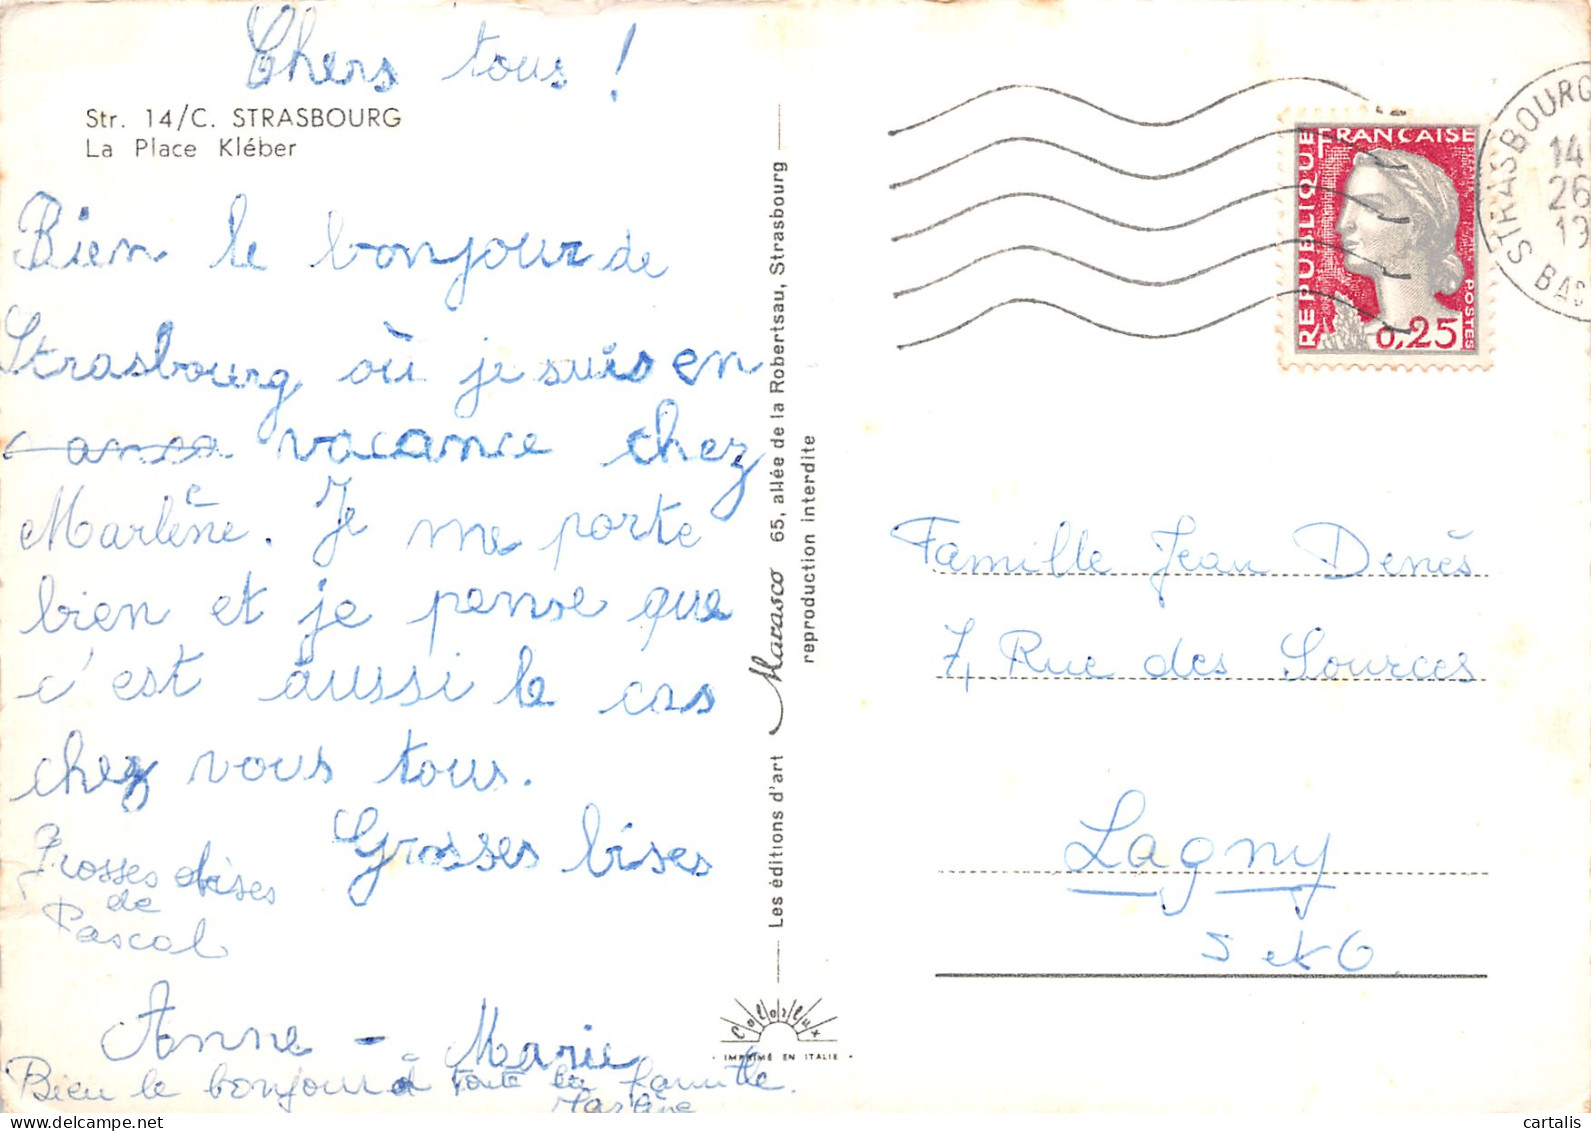 Chers tous !
Str. 14/C. STRASBOURG
La Place Kléber
Bien le bonjour de
Strasbourg où je suis en
vacance chez
Marlène. Je me porte
bien et je pense que
c'est aussi le cas
chez vous tous.
Grosses bises
Grosses bises
de
Pascal
Anne - Marie
Bien le bonjour à toute la famille.
Marlène
Les éditions d'art Marasco 65, allée de la Robertsau, Strasbourg
reproduction interdite
Colorlux
IMPRIMÉ EN ITALIE
REPUBLIQUE FRANÇAISE
POSTES
0,25
STRASBOURG
14
26
19
BAS
Famille Jean Denès
7, Rue des Sources
Lagny
S et O.
cartalis